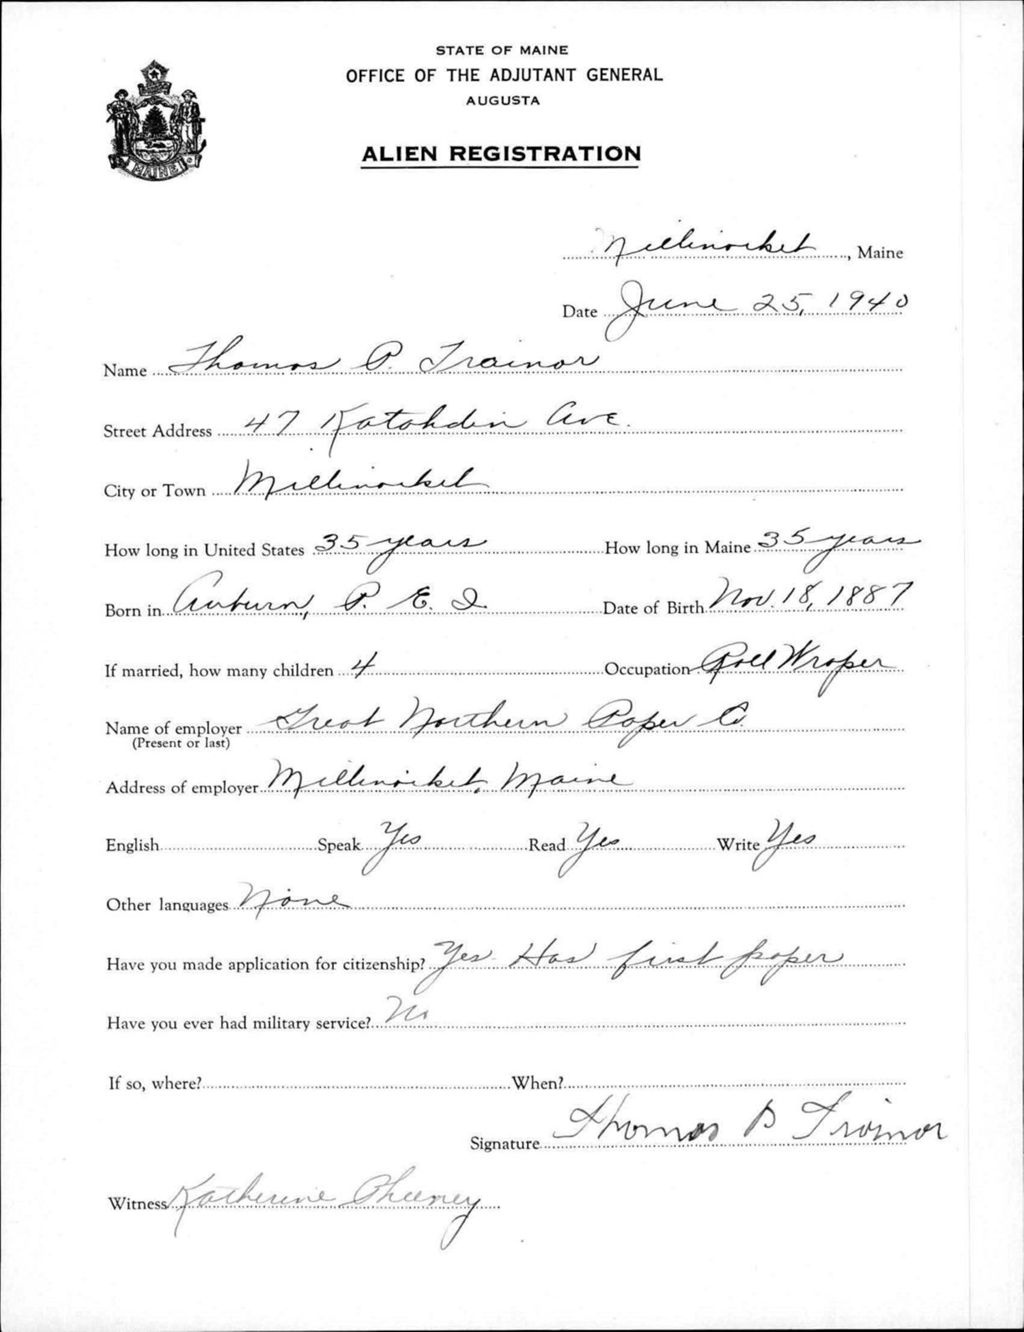 STATE OF MAINE
OFFICE OF THE ADJUTANT GENERAL
AUGUSTA
ALIEN REGISTRATION
MAINE
Millinocket, Maine
Date June 25, 1940
Name Thomas P. Trainor
Street Address 47 Katahdin Ave.
City or Town Millinocket
How long in United States 35 years How long in Maine 35 years
Born in Auburn, P. E. I. Date of Birth Nov. 18, 1887
If married, how many children 4 Occupation Roll Wraper
Name of employer Great Northern Paper Co.
(Present or last)
Address of employer Millinocket, Maine
English Speak Yes Read Yes Write Yes
Other languages None
Have you made application for citizenship? Yes Has first paper
Have you ever had military service? No
If so, where? When?
Signature Thomas P Trainor
Witness Katherine Pheeney